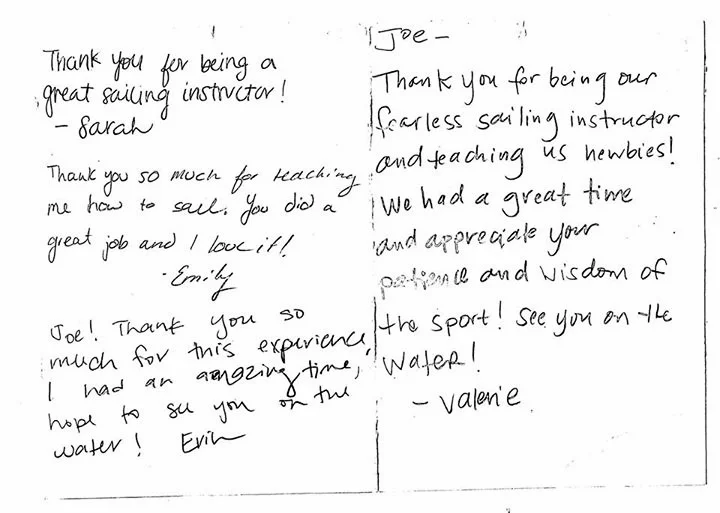 Thank you for being a
great sailing instructor!
- Sarah
Thank you so much for teaching
me how to sail. You did a
great job and I love it!
- Emily
Joe! Thank you so
much for this experience,
I had an amazing time,
hope to see you on the
water! Erin
Joe -
Thank you for being our
fearless sailing instructor
and teaching us newbies!
We had a great time
and appreciate your
patience and wisdom of
the sport! See you on the
water!
- Valerie